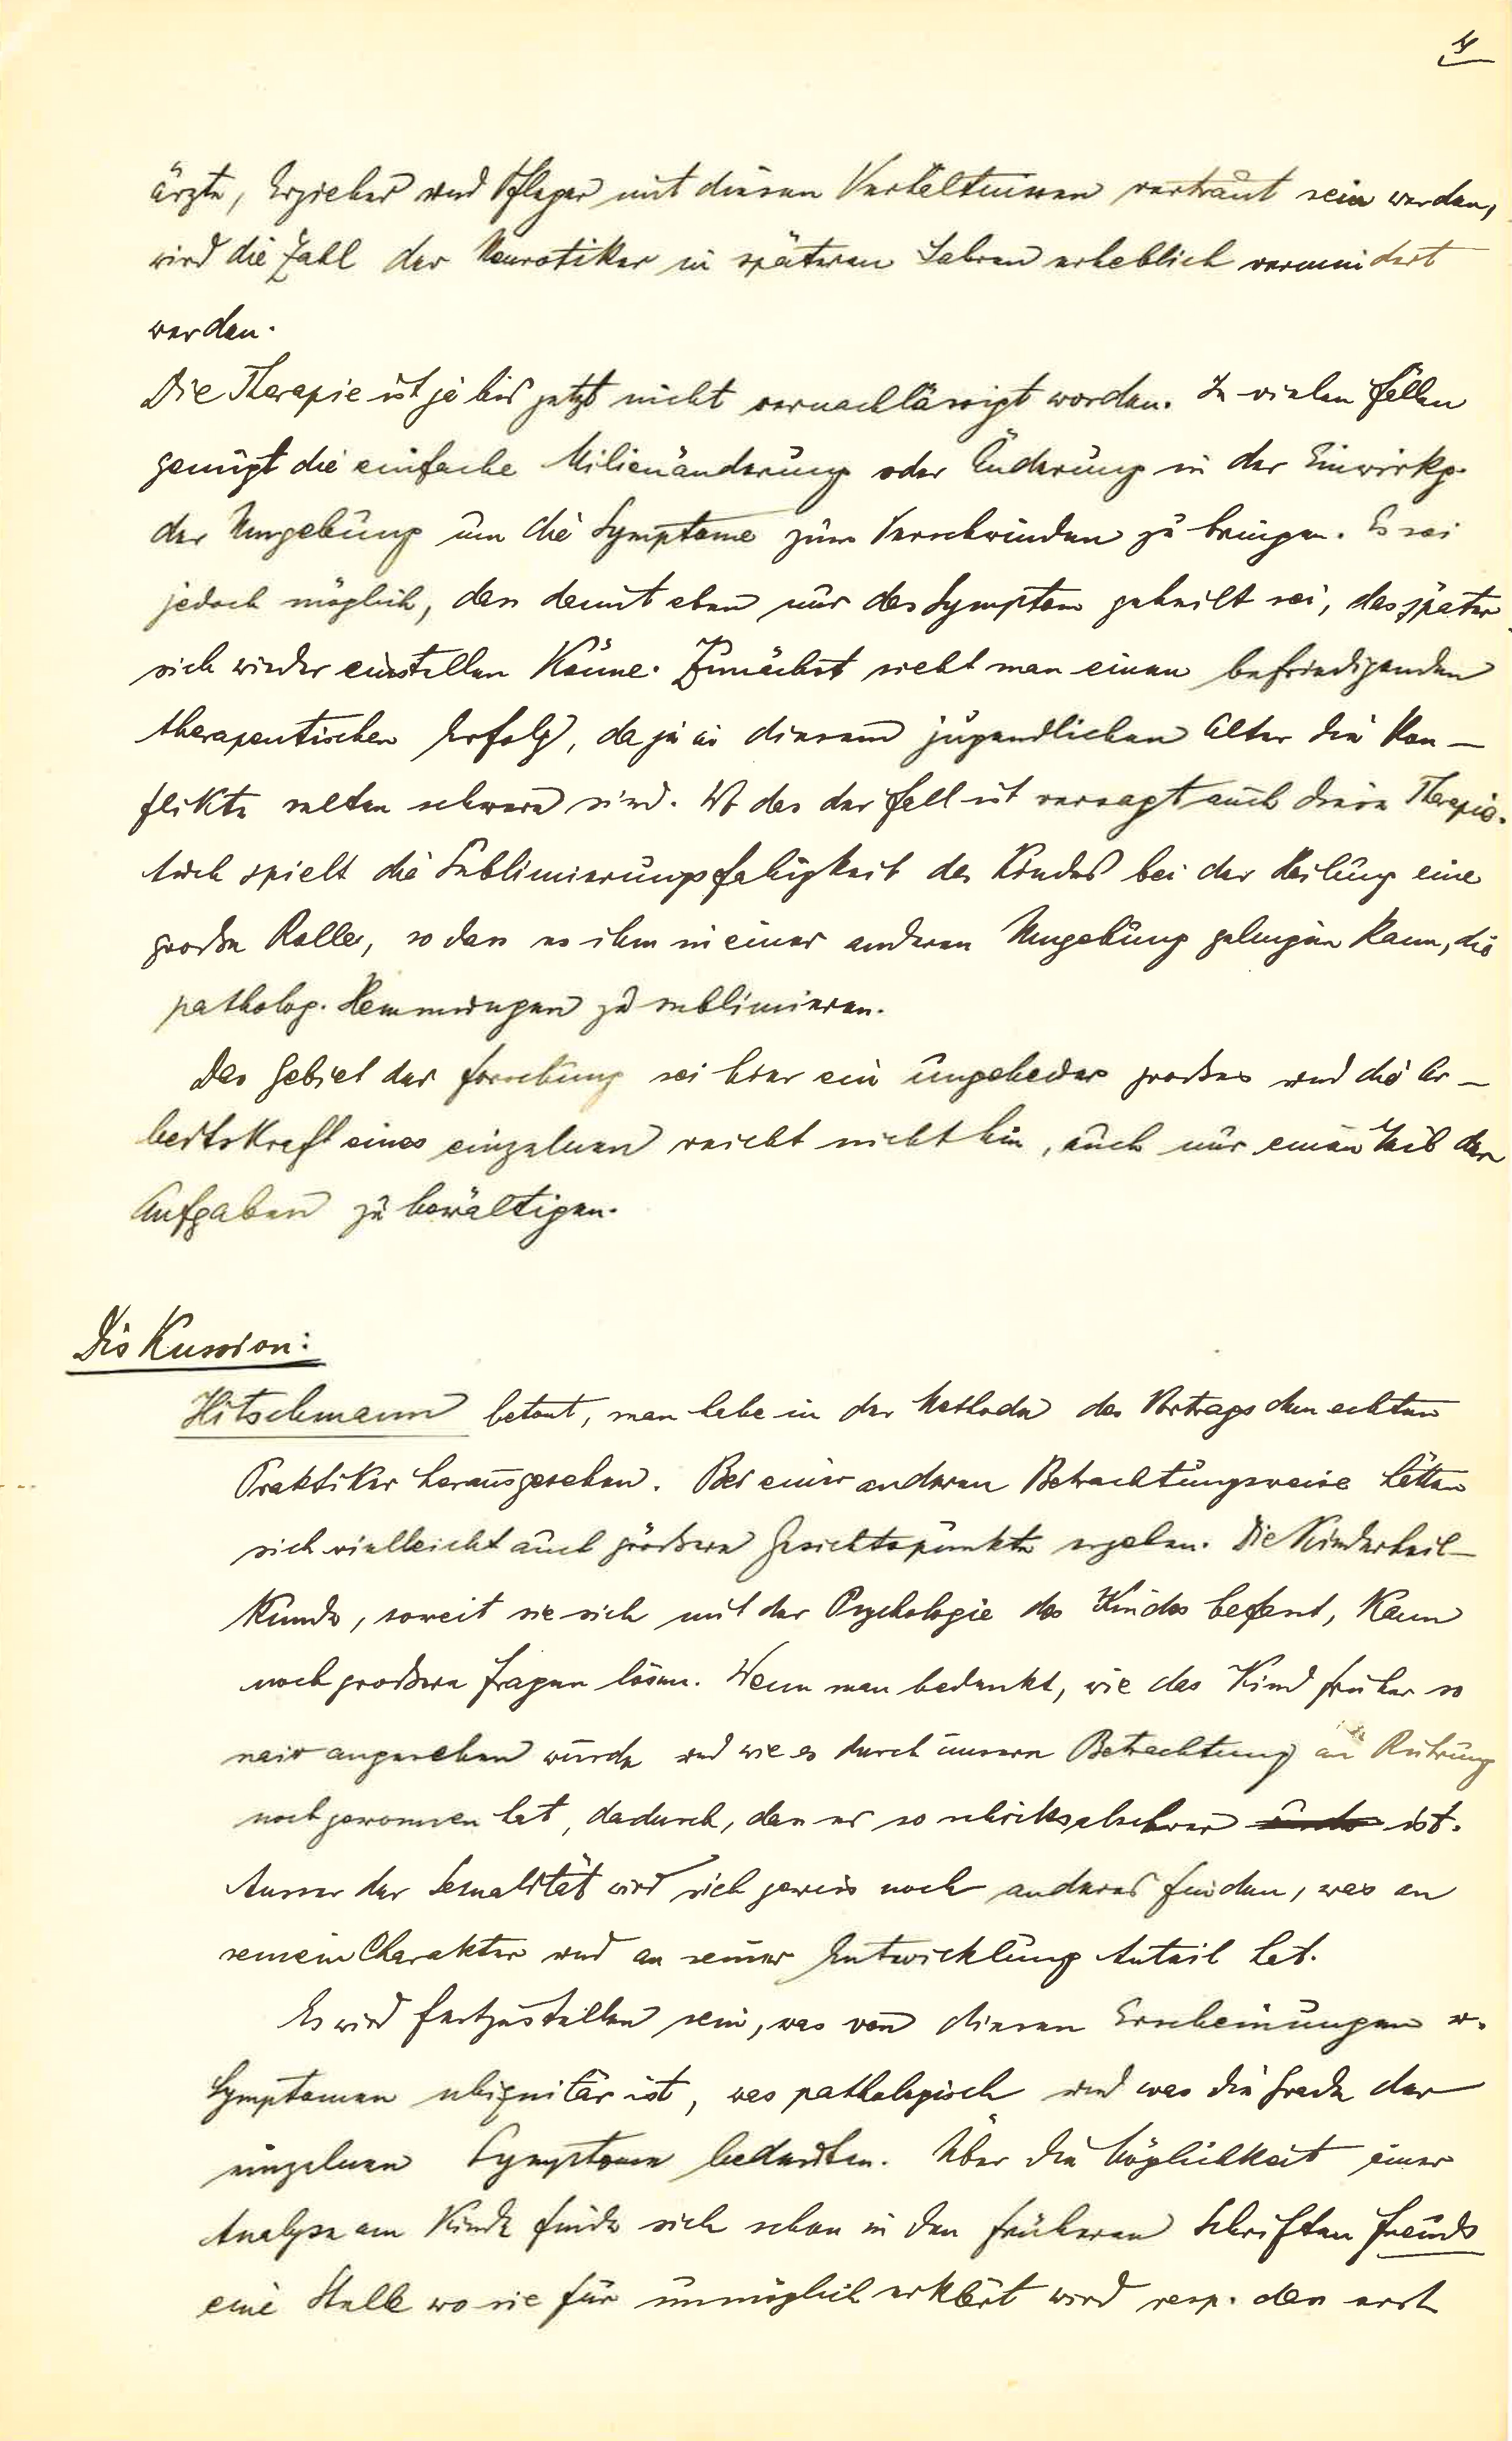 4
ärzte, Erzieher und Pfleger mit diesen Verhältnissen vertraut sein werden,
wird die Zahl der Neurotiker in späteren Jahren erheblich vermindert
werden.
Die Therapie ist ja bis jetzt nicht vernachlässigt worden. In vielen Fällen
genügt die einfache Milieuänderung oder Änderung in der Einwirkg.
der Umgebung um die Symptome zum Verschwinden zu bringen. Es sei
jedoch möglich, dass damit eben nur das Symptom geheilt sei, das später
sich wieder einstellen könne. Zunächst sieht man einen befriedigenden
therapeutischen Erfolg, da ja in diesem jugendlichen Alter die Kon-
flikte selten schwere sind. Wo das der Fall ist versagt auch diese Therapie.
Auch spielt die Sublimierungsfähigkeit des Kindes bei der Heilung eine
große Rolle, so dass es ihm in einer anderen Umgebung gelingen kann, die
patholog. Hemmungen zu sublimieren.
Das Gebiet der Forschung sei hier ein ungeheuer großes und die Ar-
beitskraft eines einzelnen reicht nicht hin, auch nur einen Teil der
Aufgaben zu bewältigen.
Diskussion:
Hitschmann betont, man habe in der Methode des Vortrags den echten
Praktiker herausgesehen. Bei einer anderen Betrachtungsweise hätten
sich vielleicht auch größere Gesichtspunkte ergeben. Die Kinderheil-
kunde, soweit sie sich mit der Psychologie des Kindes befasst, kann
noch größere Fragen lösen. Wenn man bedenkt, wie das Kind früher so
naiv angesehen wurde und wie es durch unsere Betrachtung an Rührung
noch gewonnen hat, dadurch, dass es so schicksalschwer ist.
Ausser der Sexualität wird sich gewiss noch anderes finden, was an
seinem Charakter und an seiner Entwicklung Anteil hat.
Es wird festzustellen sein, was von diesen Erscheinungen u.
Symptomen ubiquitär ist, was pathologisch und was die Grade der
einzelnen Symptome bedeuten. Über die Möglichkeit einer
Analyse am Kinde finde sich schon in den früheren Schriften Freuds
eine Stelle wo sie für unmöglich erklärt wird resp. dass erst